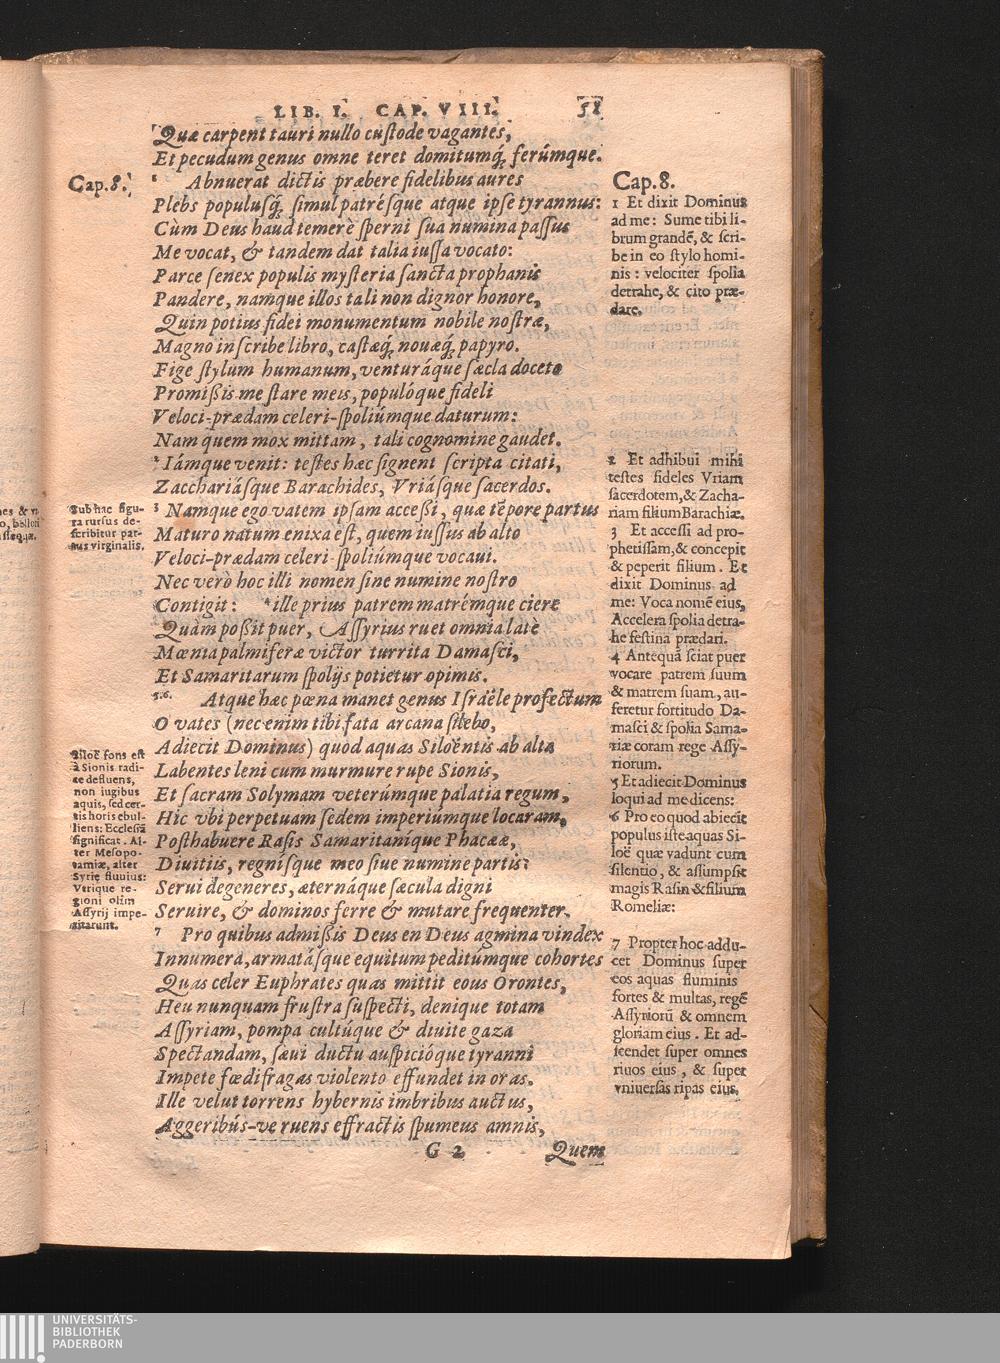 LIB. I. CAP. VIII. 51
Quæ carpent tauri nullo custode vagantes,
Et pecudum genus omne teret domitumq́; ferúmque.
Cap. 8.
1 Abnuerat dictis præbere fidelibus aures
Plebs populusq́; simul patrésque atque ipse tyrannus:
Cùm Deus haud temerè sperni sua numina passus
Me vocat, & tandem dat talia iussa vocato:
Parce senex populis mysteria sancta prophanis
Pandere, namque illos tali non dignor honore,
Quin potius fidei monumentum nobile nostræ,
Magno inscribe libro, castæq́; nouæq́; papyro.
Fige stylum humanum, venturáque sæcla doceto
Promißis me stare meis, populóque fideli
Veloci-prædam celeri-spoliúmque daturum:
Nam quem mox mittam, tali cognomine gaudet.
2 Iámque venit: testes hæc signent scripta citati,
Zacchariásque Barachides, Vriásque sacerdos.
3 Namque ego vatem ipsam acceßi, quæ tẽpore partus
Maturo natum enixa est, quem iussus ab alto
Veloci-prædam celeri-spoliúmque vocaui.
Nec verò hoc illi nomen sine numine nostro
Contigit: 4 ille prius patrem matrémque ciere
Quàm poßit puer, Assyrius ruet omnia latè
Mœnia palmiferæ victor turrita Damasci,
Et Samaritarum spolijs potietur opimis.
5.6. Atque hæc pœna manet genus Israële profectum
O vates (nec enim tibi fata arcana silebo,
Adiecit Dominus) quod aquas Siloëntis ab alta
Labentes leni cum murmure rupe Sionis,
Et sacram Solymam veterúmque palatia regum,
Hic vbi perpetuam sedem imperiúmque locaram,
Posthabuere Rasis Samaritanique Phacææ,
Diuitiis, regnisque meo siue numine partis:
Serui degeneres, æternáque sæcula digni
Seruire, & dominos ferre & mutare frequenter.
7 Pro quibus admißis Deus en Deus agmina vindex
Innumera, armatásque equitum peditúmque cohortes
Quas celer Euphrates quas mittit eous Orontes,
Heu nunquam frustra suspecti, denique totam
Assyriam, pompa cultúque & diuite gaza
Spectandam, sæui ductu auspicióque tyranni
Impete fœdifragas violento effundet in oras.
Ille velut torrens hybernis imbribus auctus,
Aggeribús-ve ruens effractis spumeus amnis,
G 2 Quem
Sub hac figu-
ra rursus de-
scribitur par-
tus virginalis.
Siloë fons est
à Sionis radi-
ce defluens,
non iugibus
aquis, sed cer-
tis horis ebul-
liens: Ecclesiã
significat. Al-
ter Mesopo-
tamiæ, alter
Syrię fluuius:
Vtrique re-
gioni olim
Assyrij impe-
ritarunt.
Cap. 8.
1 Et dixit Dominus
ad me: Sume tibi li-
brum grandẽ, & scri-
be in eo stylo homi-
nis: velociter spolia
detrahe, & cito præ-
dare.
2 Et adhibui mihi
testes fideles Vriam
sacerdotem, & Zacha-
riam filium Barachiæ.
3 Et accessi ad pro-
phetissam, & concepit
& peperit filium. Et
dixit Dominus ad
me: Voca nomẽ eius,
Accelera spolia detra-
he festina prædari.
4 Antequã sciat puer
vocare patrem suum
& matrem suam, au-
feretur fortitudo Da-
masci & spolia Sama-
riæ coram rege Assy-
riorum.
5 Et adiecit Dominus
loqui ad me dicens:
6 Pro eo quod abiecit
populus iste aquas Si-
loë quæ vadunt cum
silentio, & assumpsit
magis Rasin & filium
Romeliæ:
7 Propter hoc addu-
cet Dominus super
eos aquas fluminis
fortes & multas, regẽ
Assyriorũ & omnem
gloriam eius. Et ad-
scendet super omnes
riuos eius, & super
vniuersas ripas eius,
UNIVERSITÄTS-
BIBLIOTHEK
PADERBORN